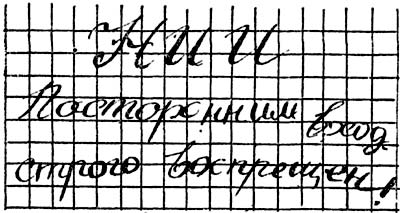 НИИ
Посторонним вход
строго воспрещен!